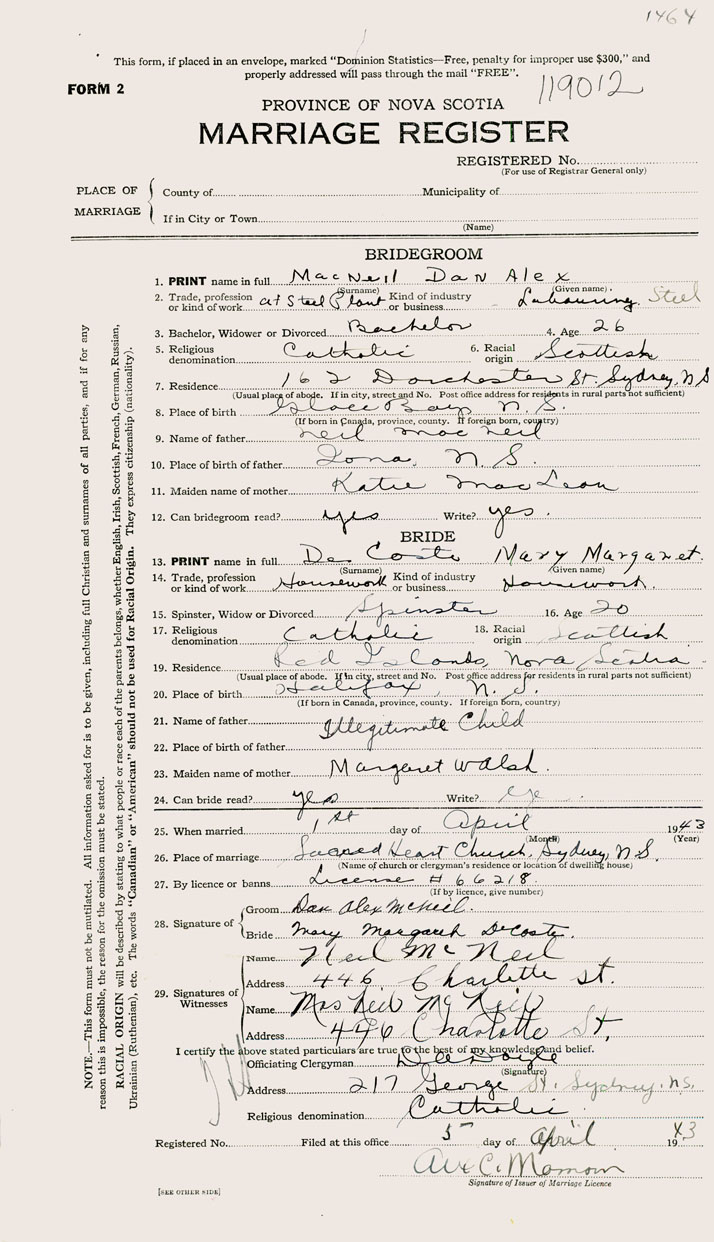 1464
This form, if placed in an envelope, marked "Dominion Statistics—Free, penalty for improper use $300," and
properly addressed will pass through the mail "FREE".
119012
FORM 2
PROVINCE OF NOVA SCOTIA
MARRIAGE REGISTER
REGISTERED No.
(For use of Registrar General only)
PLACE OF MARRIAGE
County of Municipality of
If in City or Town
(Name)
BRIDEGROOM
1. PRINT name in full MacNeil Dan Alex
(Surname) (Given name)
2. Trade, profession or kind of work at Steel Plant Kind of industry or business Labouring Steel
3. Bachelor, Widower or Divorced Bachelor 4. Age 26
5. Religious denomination Catholic 6. Racial origin Scottish
7. Residence 162 Dorchester St. Sydney, N S
(Usual place of abode. If in city, street and No. Post office address for residents in rural parts not sufficient)
8. Place of birth Glace Bay N. S.
(If born in Canada, province, county. If foreign born, country)
9. Name of father Neil Mac Neil
10. Place of birth of father Iona, N. S.
11. Maiden name of mother Katie Mac Lean
12. Can bridegroom read? yes Write? yes.
BRIDE
13. PRINT name in full De Coste Mary Margaret.
(Surname) (Given name)
14. Trade, profession or kind of work Housework Kind of industry or business Housework.
15. Spinster, Widow or Divorced Spinster 16. Age 20
17. Religious denomination Catholic 18. Racial origin Scottish
19. Residence Red Islands, Nova Scotia
(Usual place of abode. If in city, street and No. Post office address for residents in rural parts not sufficient)
20. Place of birth Halifax, N. S.
(If born in Canada, province, county. If foreign born, country)
21. Name of father Illegitimate Child
22. Place of birth of father
23. Maiden name of mother Margaret Walsh.
24. Can bride read? yes Write?
25. When married 1st day of April 1943
(Month) (Year)
26. Place of marriage Sacred Heart Church, Sydney, N.S.
(Name of church or clergyman's residence or location of dwelling house)
27. By licence or banns License # 66218.
(If by licence, give number)
28. Signature of
Groom Dan Alex McNeil.
Bride Mary Margaret DeCoste.
29. Signatures of Witnesses
Name Neil Mc Neil
Address 446 Charlotte St.
Name Mrs Neil McNeil
Address 446 Charlotte St.
I certify the above stated particulars are true to the best of my knowledge and belief.
Officiating Clergyman Doyle
(Signature)
Address 217 George St. Sydney, N.S.
Religious denomination Catholic.
Registered No. Filed at this office 5 day of April 1943
Signature of Issuer of Marriage Licence
[SEE OTHER SIDE]
NOTE.—This form must not be mutilated. All information asked for is to be given, including full Christian and surnames of all parties, and if for any
reason this is impossible, the reason for the omission must be stated.
RACIAL ORIGIN will be described by stating to what people or race each of the parents belongs, whether English, Irish, Scottish, French, German, Russian,
Ukrainian (Ruthenian), etc. The words "Canadian" or "American" should not be used for Racial Origin. They express citizenship (nationality).